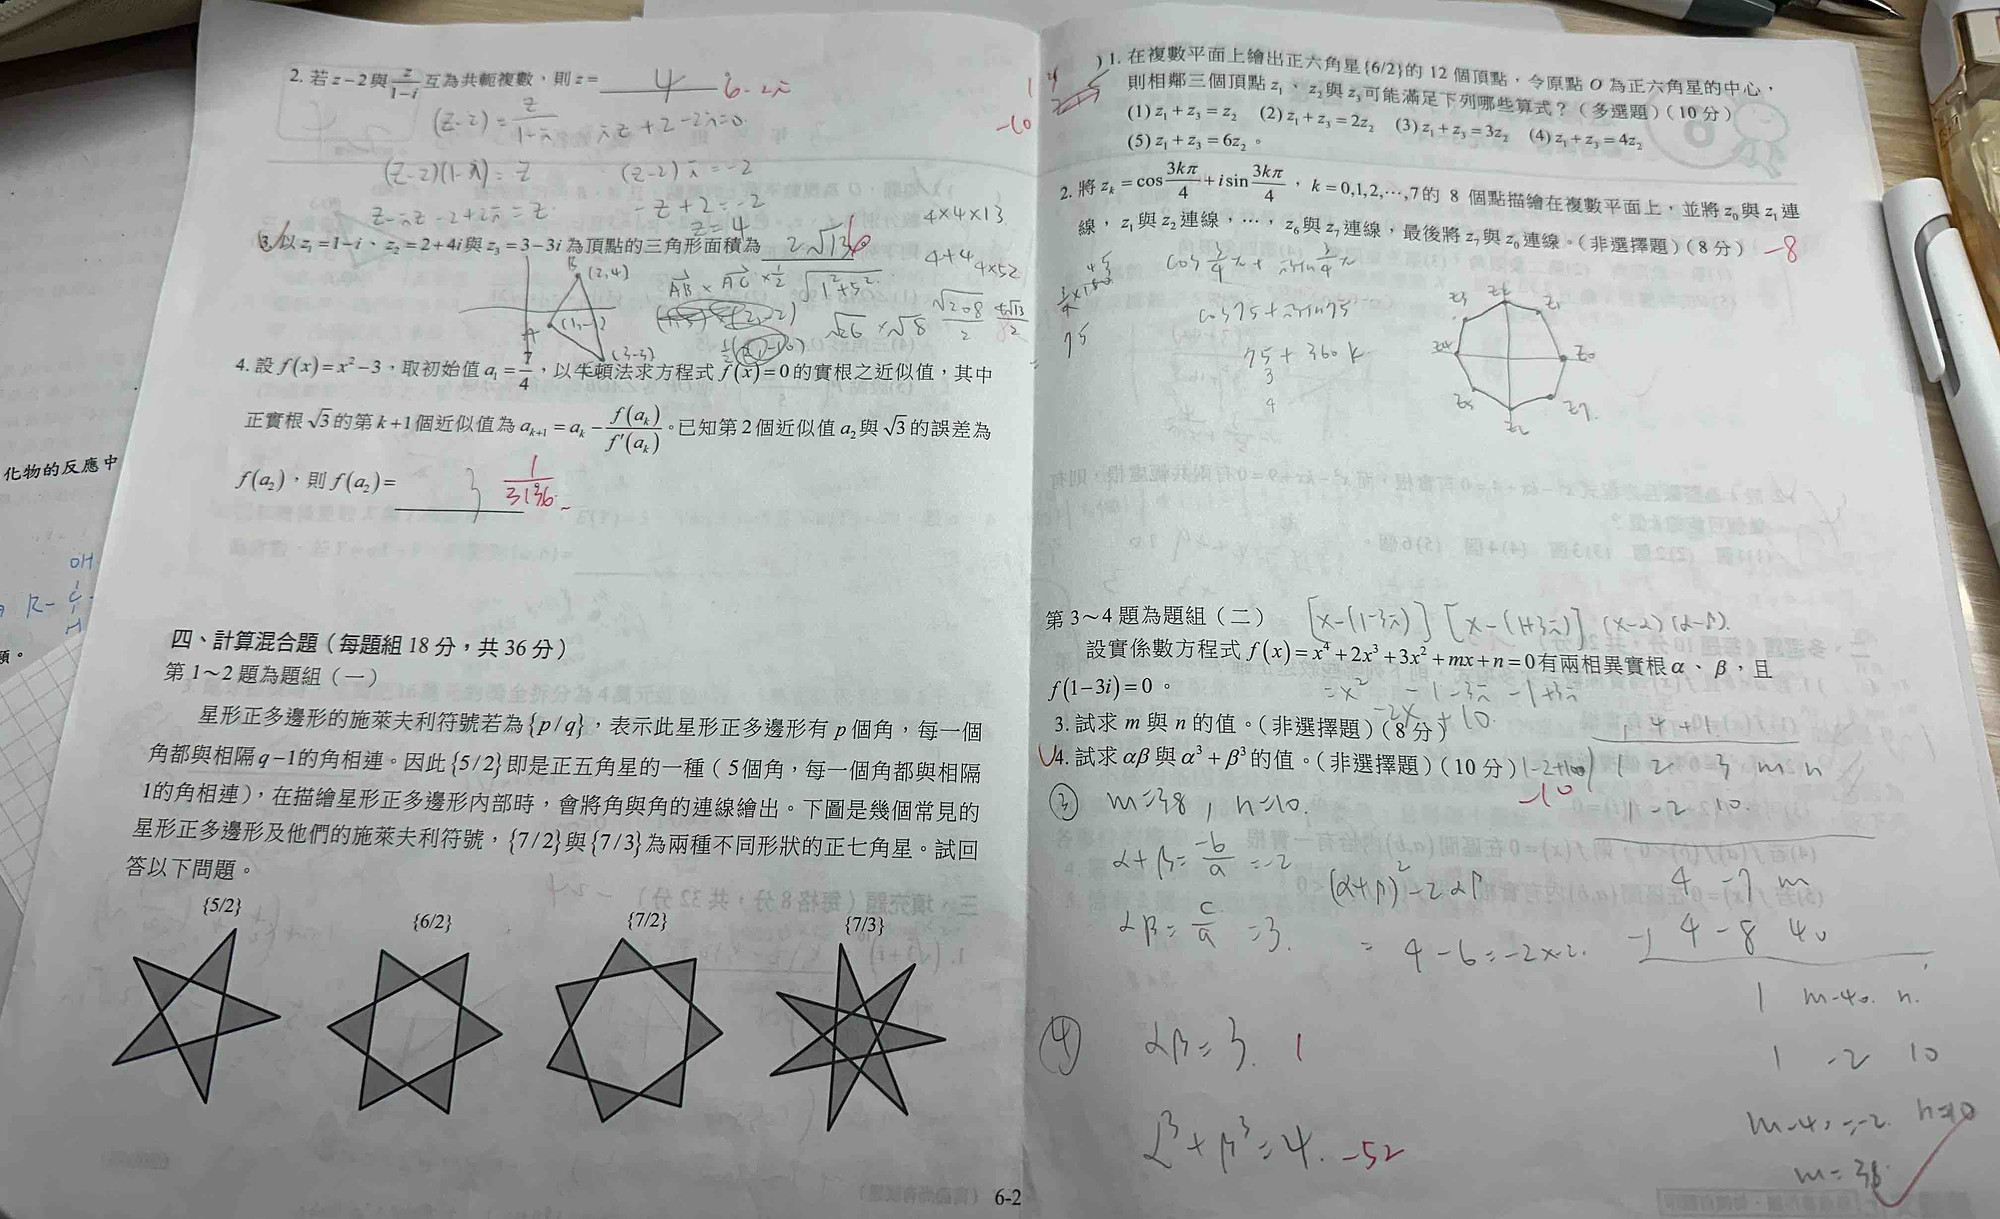 2. 若 z−2 與 z/(1−i) 互為共軛複數,則 z= 4 6-2i
(z-2) = z/(1-i) iz+2-2i=0.
(z-2)(1-i) = z (z-2)i=-2
z-iz-2+2i=z. -z+2=-2
z=4
4×4×13
3. 以 z₁=1−i、z₂=2+4i 與 z₃=3−3i 為頂點的三角形面積為 2√13 6
4+4 4×52
B (2,4)
AB × AC × 1/2 √(1²+5²)
√26 × √8 √208/2 4√13/2
A (1,-1)
(3-3)
4. 設 f(x)=x²−3,取初始值 a₁=7/4,以牛頓法求方程式 f(x)=0 的實根之近似值,其中
正實根 √3 的第 k+1 個近似值為 aₖ₊₁=aₖ−f(aₖ)/f′(aₖ)。已知第 2 個近似值 a₂ 與 √3 的誤差為
f(a₂),則 f(a₂)= 3 1/3136
四、計算混合題(每題組 18 分,共 36 分)
第 1~2 題為題組(一)
星形正多邊形的施萊夫利符號若為{p/q},表示此星形正多邊形有 p 個角,每一個
角都與相隔 q−1 的角相連。因此{5/2}即是正五角星的一種(5個角,每一個角都與相隔
1的角相連),在描繪星形正多邊形內部時,會將角與角的連線繪出。下圖是幾個常見的
星形正多邊形及他們的施萊夫利符號,{7/2}與{7/3}為兩種不同形狀的正七角星。試回
答以下問題。
{5/2} {6/2} {7/2} {7/3}
6-2
)1. 在複數平面上繪出正六角星{6/2}的 12 個頂點,令原點 O 為正六角星的中心,
則相鄰三個頂點 z₁、z₂與 z₃可能滿足下列哪些算式?(多選題)(10 分)
-10
(1) z₁+z₃=z₂ (2) z₁+z₃=2z₂ (3) z₁+z₃=3z₂ (4) z₁+z₃=4z₂
(5) z₁+z₃=6z₂。
2. 將 zₖ=cos 3kπ/4 + i sin 3kπ/4,k=0,1,2,⋯,7 的 8 個點描繪在複數平面上,並將 z₀ 與 z₁ 連
線,z₁ 與 z₂ 連線,⋯,z₆ 與 z₇ 連線,最後將 z₇ 與 z₀ 連線。(非選擇題)(8 分) -8
cos 3/4 π + i sin 3/4 π
cos75+isin75
75
75+360k
z3 z2 z1
z4 z0
z5 z7
第 3~4 題為題組(二) [x-(1-3i)] [x-(1+3i)]
設實係數方程式 f(x)=x⁴+2x³+3x²+mx+n=0 有兩相異實根 α、β,且
f(1−3i)=0。
=x² -1-3i -1+3i
-2x +10.
3. 試求 m 與 n 的值。(非選擇題)(8 分)
4. 試求 αβ 與 α³+β³ 的值。(非選擇題)(10 分)
-10
1 4 +1
1-2+10 ) 1 2 3 m n
1 -2 10.
4 -7 m
4 -8 40
1 m-40. n.
1 -2 10
m-40=-2. n=10
m=38
③ m=38, n=10.
α+β= -b/a =-2
αβ= c/a =3.
(α+β)²-2αβ
= 4-6=-2×2.
④ αβ=3. 1
α³+β³=4. -52
化物的反應中
OH
R-C-
H
題。